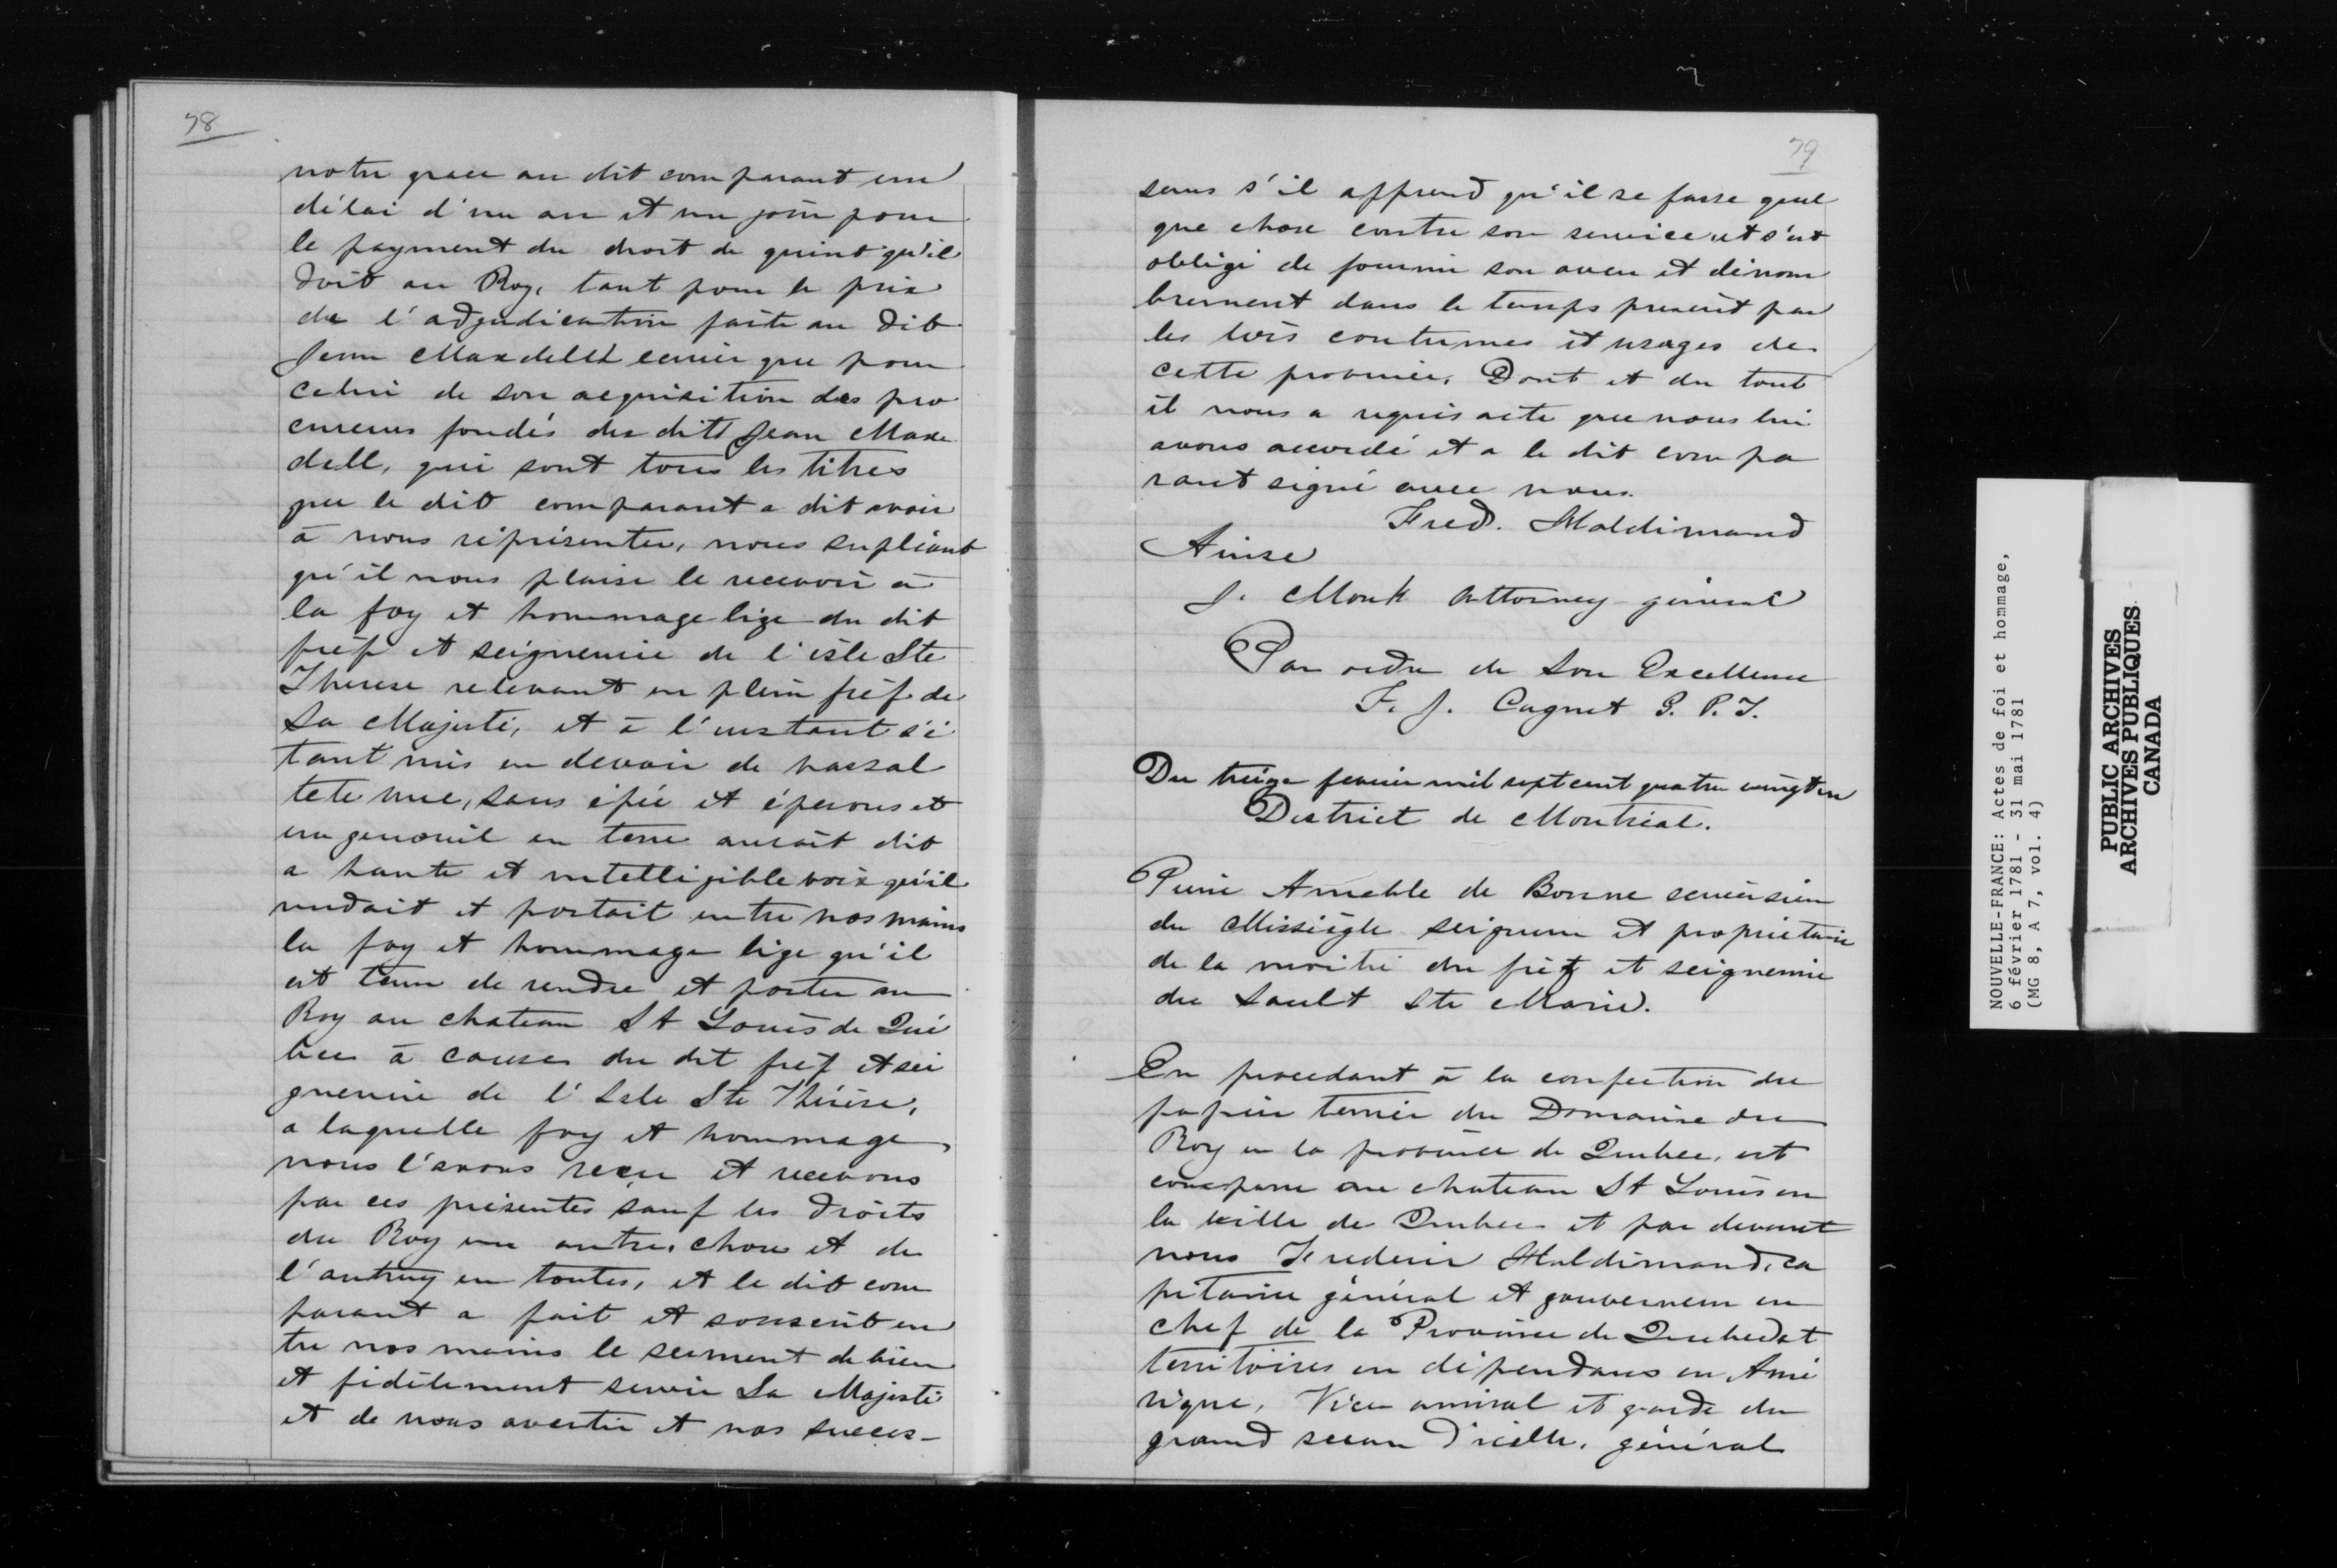 78
notre grace au dit comparant un
délai d'un an et un jour pour
le payment du droit de quint qu'il
doit au Roy, tant pour le prix
de l'adjudication faite au dit
Jean Maxdell ecuier que pour
celui de son acquisition des pro
cureurs fondés des dits Jean Max
dell, qui sont tous les titres
que le dit comparant a dit avoir
à nous représenter, nous supliant
qu'il nous plaise le recevoir à
la foy et hommage lige du dit
fief et seigneurie de l'isle Ste
Therese relevant en plein fief de
Sa Majesté, et à l'instant s'é
tant mis en devoir de vassal
tete nue, sans épée et éperons et
un genouil en terre aurait dit
a haute et intelligible voix qu'il
rendait et portait entre nos mains
la foy et hommage lige qu'il
est tenu de rendre et porter au
Roy au chateau St Louis de Qué
bec à cause du dit fief et sei
gneurie de l'Isle Ste Thérèse,
a laquelle foy et hommage
nous l'avons reçu et recevons
par ces présentes sauf les droits
du Roy en autre chose et de
l'autruy en toutes, et le dit com
parant a fait et souscrit en
tre nos mains le serment de bien
et fidèlement servir Sa Majesté
et de nous avertir et nos succes-
79
seurs s'il apprend qu'il se fasse quel
que chose contre son service et s'est
obligé de fournir son aveu et dénom
brement dans le temps prescrit par
les lois coutumes et usages de
cette province. Dont et du tout
il nous a requis acte que nous lui
avons accordé et a le dit compa
rant signé avec nous.
Fred. Haldimand
Ainse
J. Monk Attorney général
Par ordre de Son Excellence
F. J. Cugnet G. P. T.
Du treize fevrier mil sept cent quatre vingt un
District de Montréal.
Pierre Amable de Bonne ecuier sieur
du Missiègle seigneur et propriétaire
de la moitié du fief et seigneurie
du Sault Ste Marie.
En procedant à la confection du
papier terrier du Domaine du
Roy en la province de Quebec, est
comparu au chateau St Louis en
la ville de Quebec et par devant
nous Frederic Haldimand, ca
pitaine général et gouverneur en
chef de la Province de Quebec et
territoires en dépendans en Amé
rique, Vice amiral et garde du
grand sceau d'icelle, général
NOUVELLE-FRANCE: Actes de foi et hommage,
6 février 1781 - 31 mai 1781
(MG 8, A 7, vol. 4)
PUBLIC ARCHIVES
ARCHIVES PUBLIQUES
CANADA